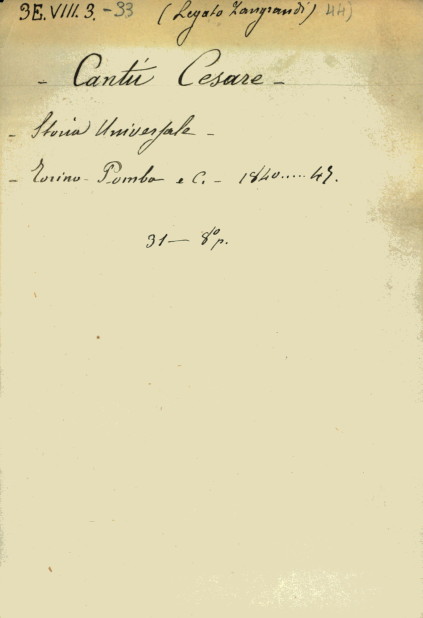 3E.VIII.3.-33 (Legato Zangrandi) 44)
- Cantù Cesare -
- Storia Universale -
- Torino - Pomba e C. - 1840.....47.
31 - 8º p.